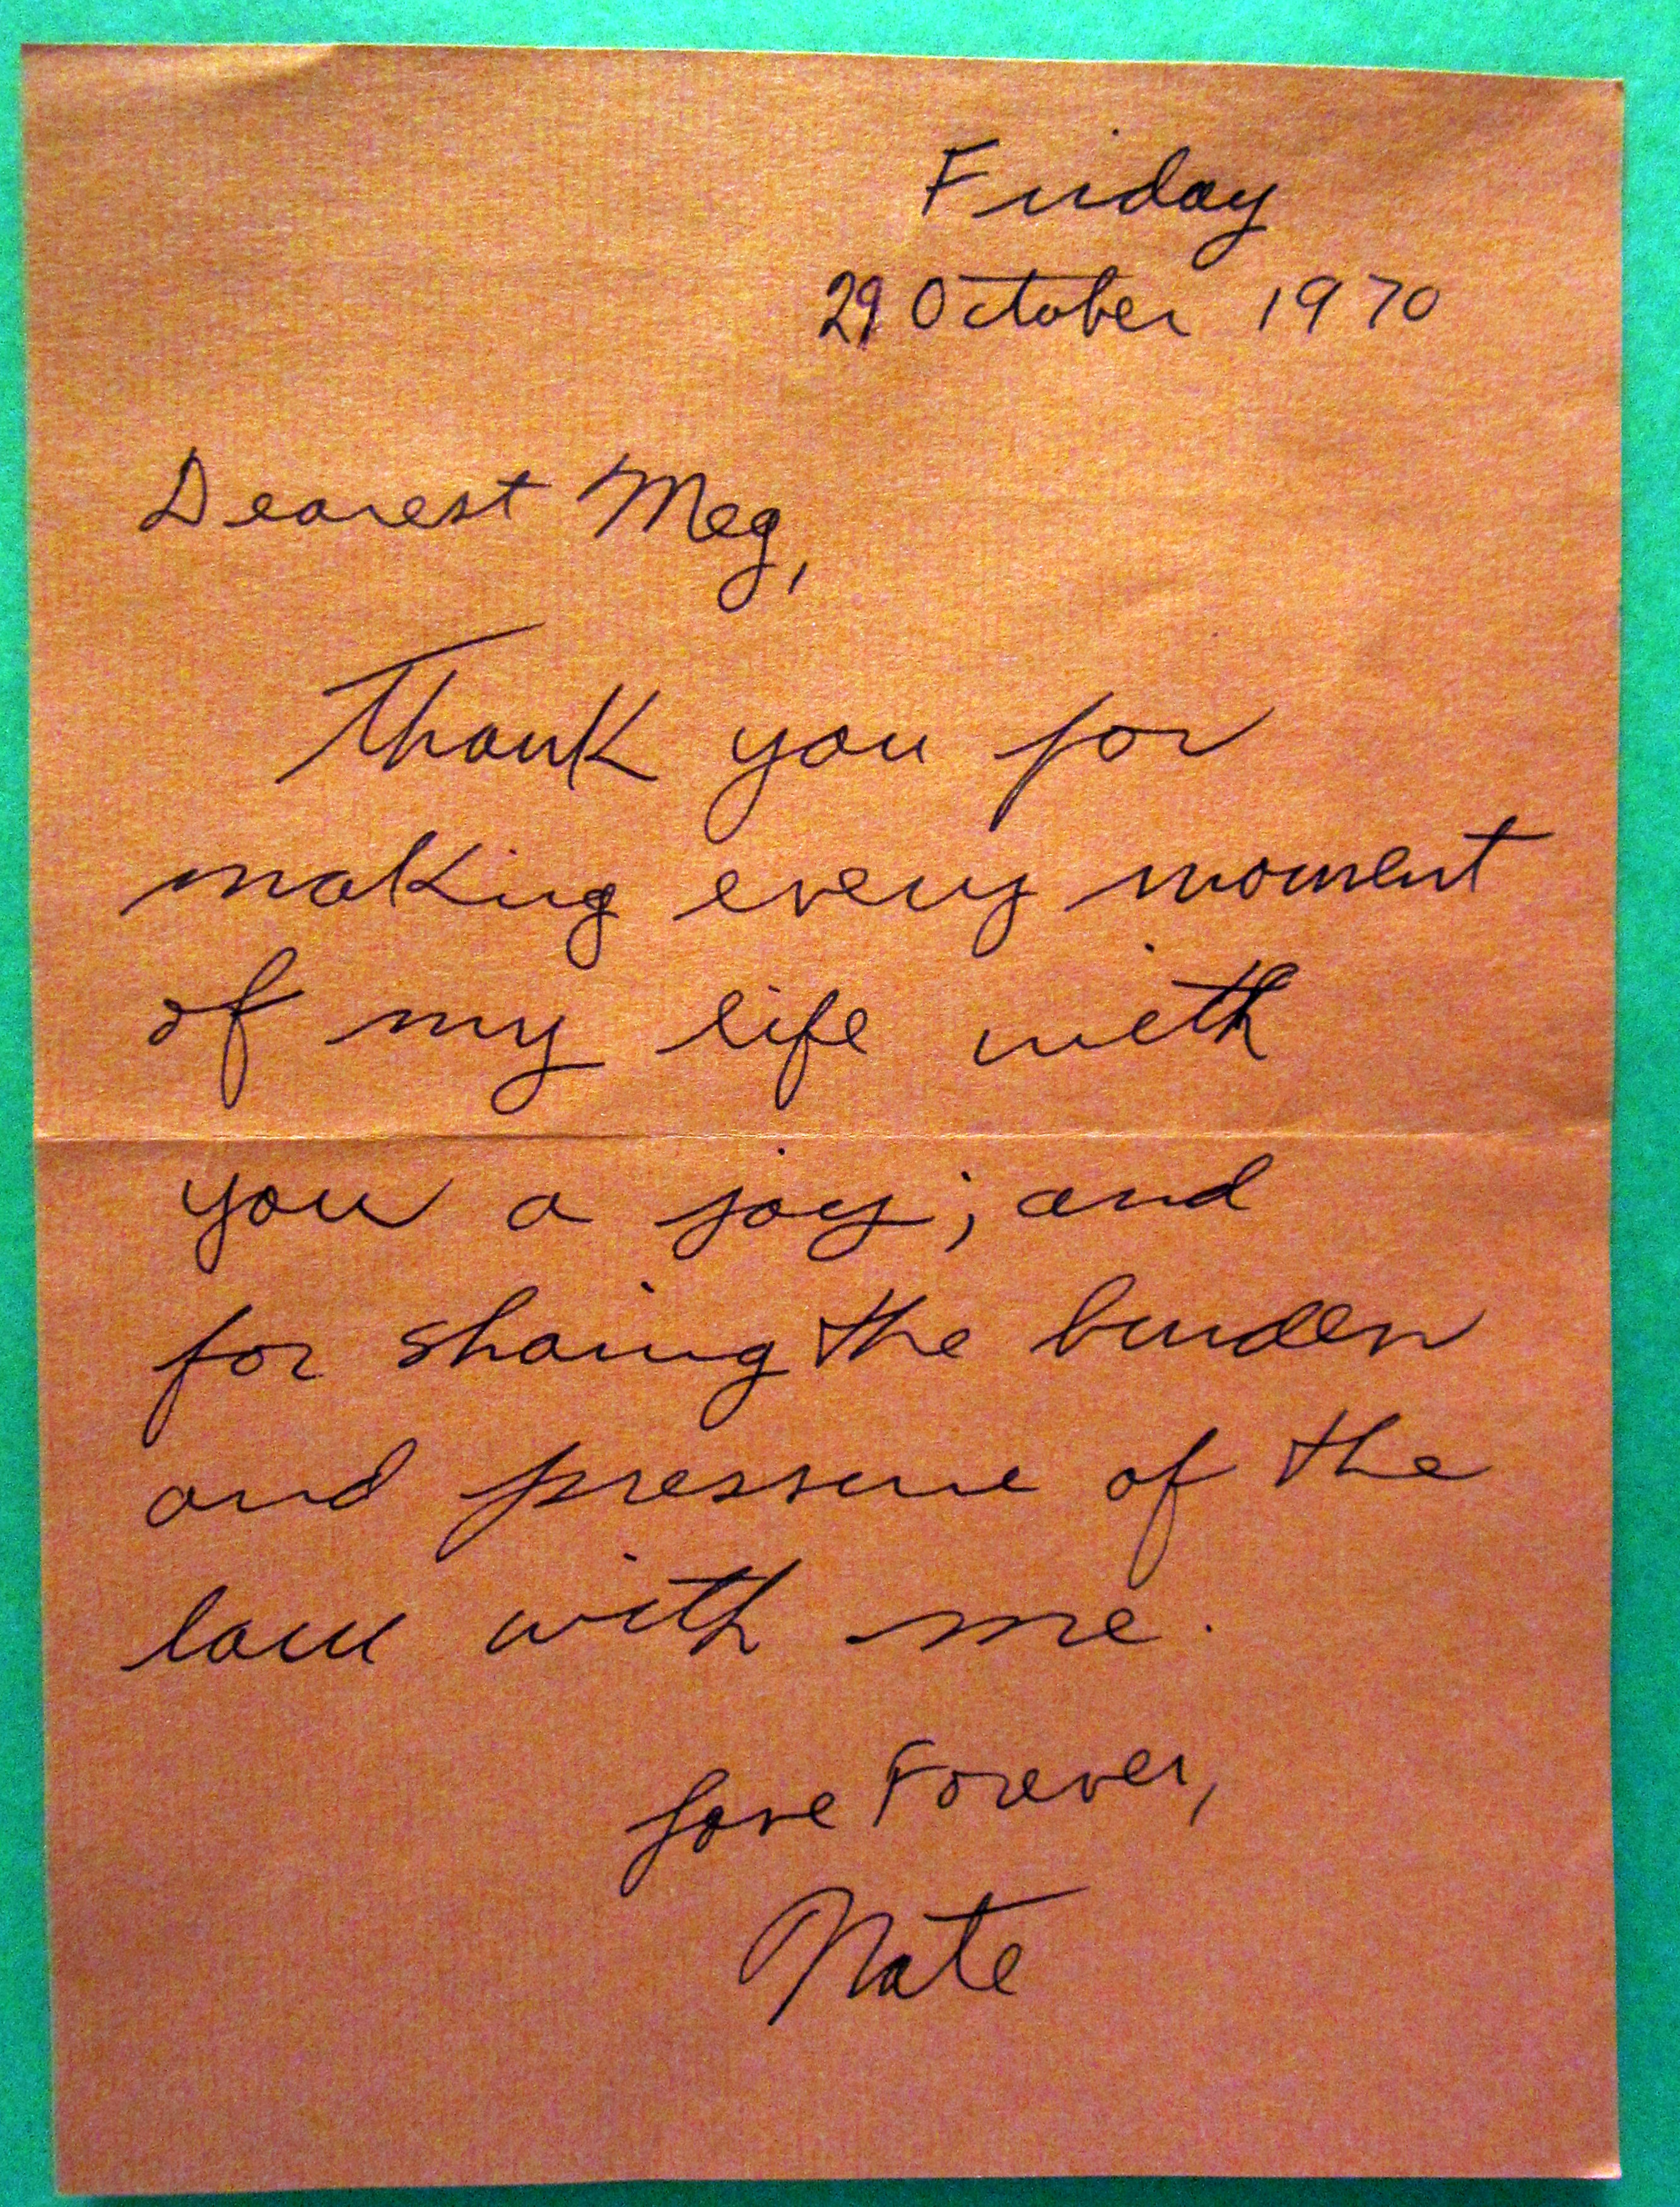 Friday
29 October 1970
Dearest Meg,
Thank you for
making every moment
of my life with
you a joy; and
for sharing the burden
and pressure of the
law with me.
Love Forever,
Nate